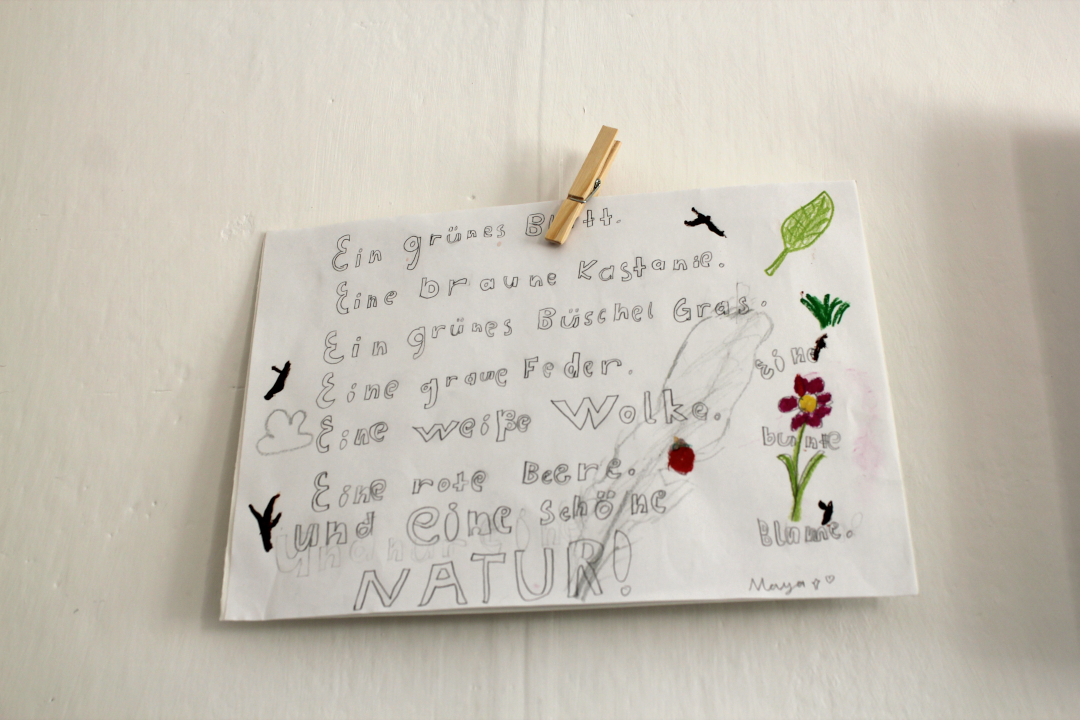 Ein grünes Blatt.
Eine braune Kastanie.
Ein grünes Büschel Gras.
Eine graue Feder.
Eine weiße Wolke.
Eine rote Beere.
und eine schöne
NATUR!
eine
bunte
Blume.
Maya